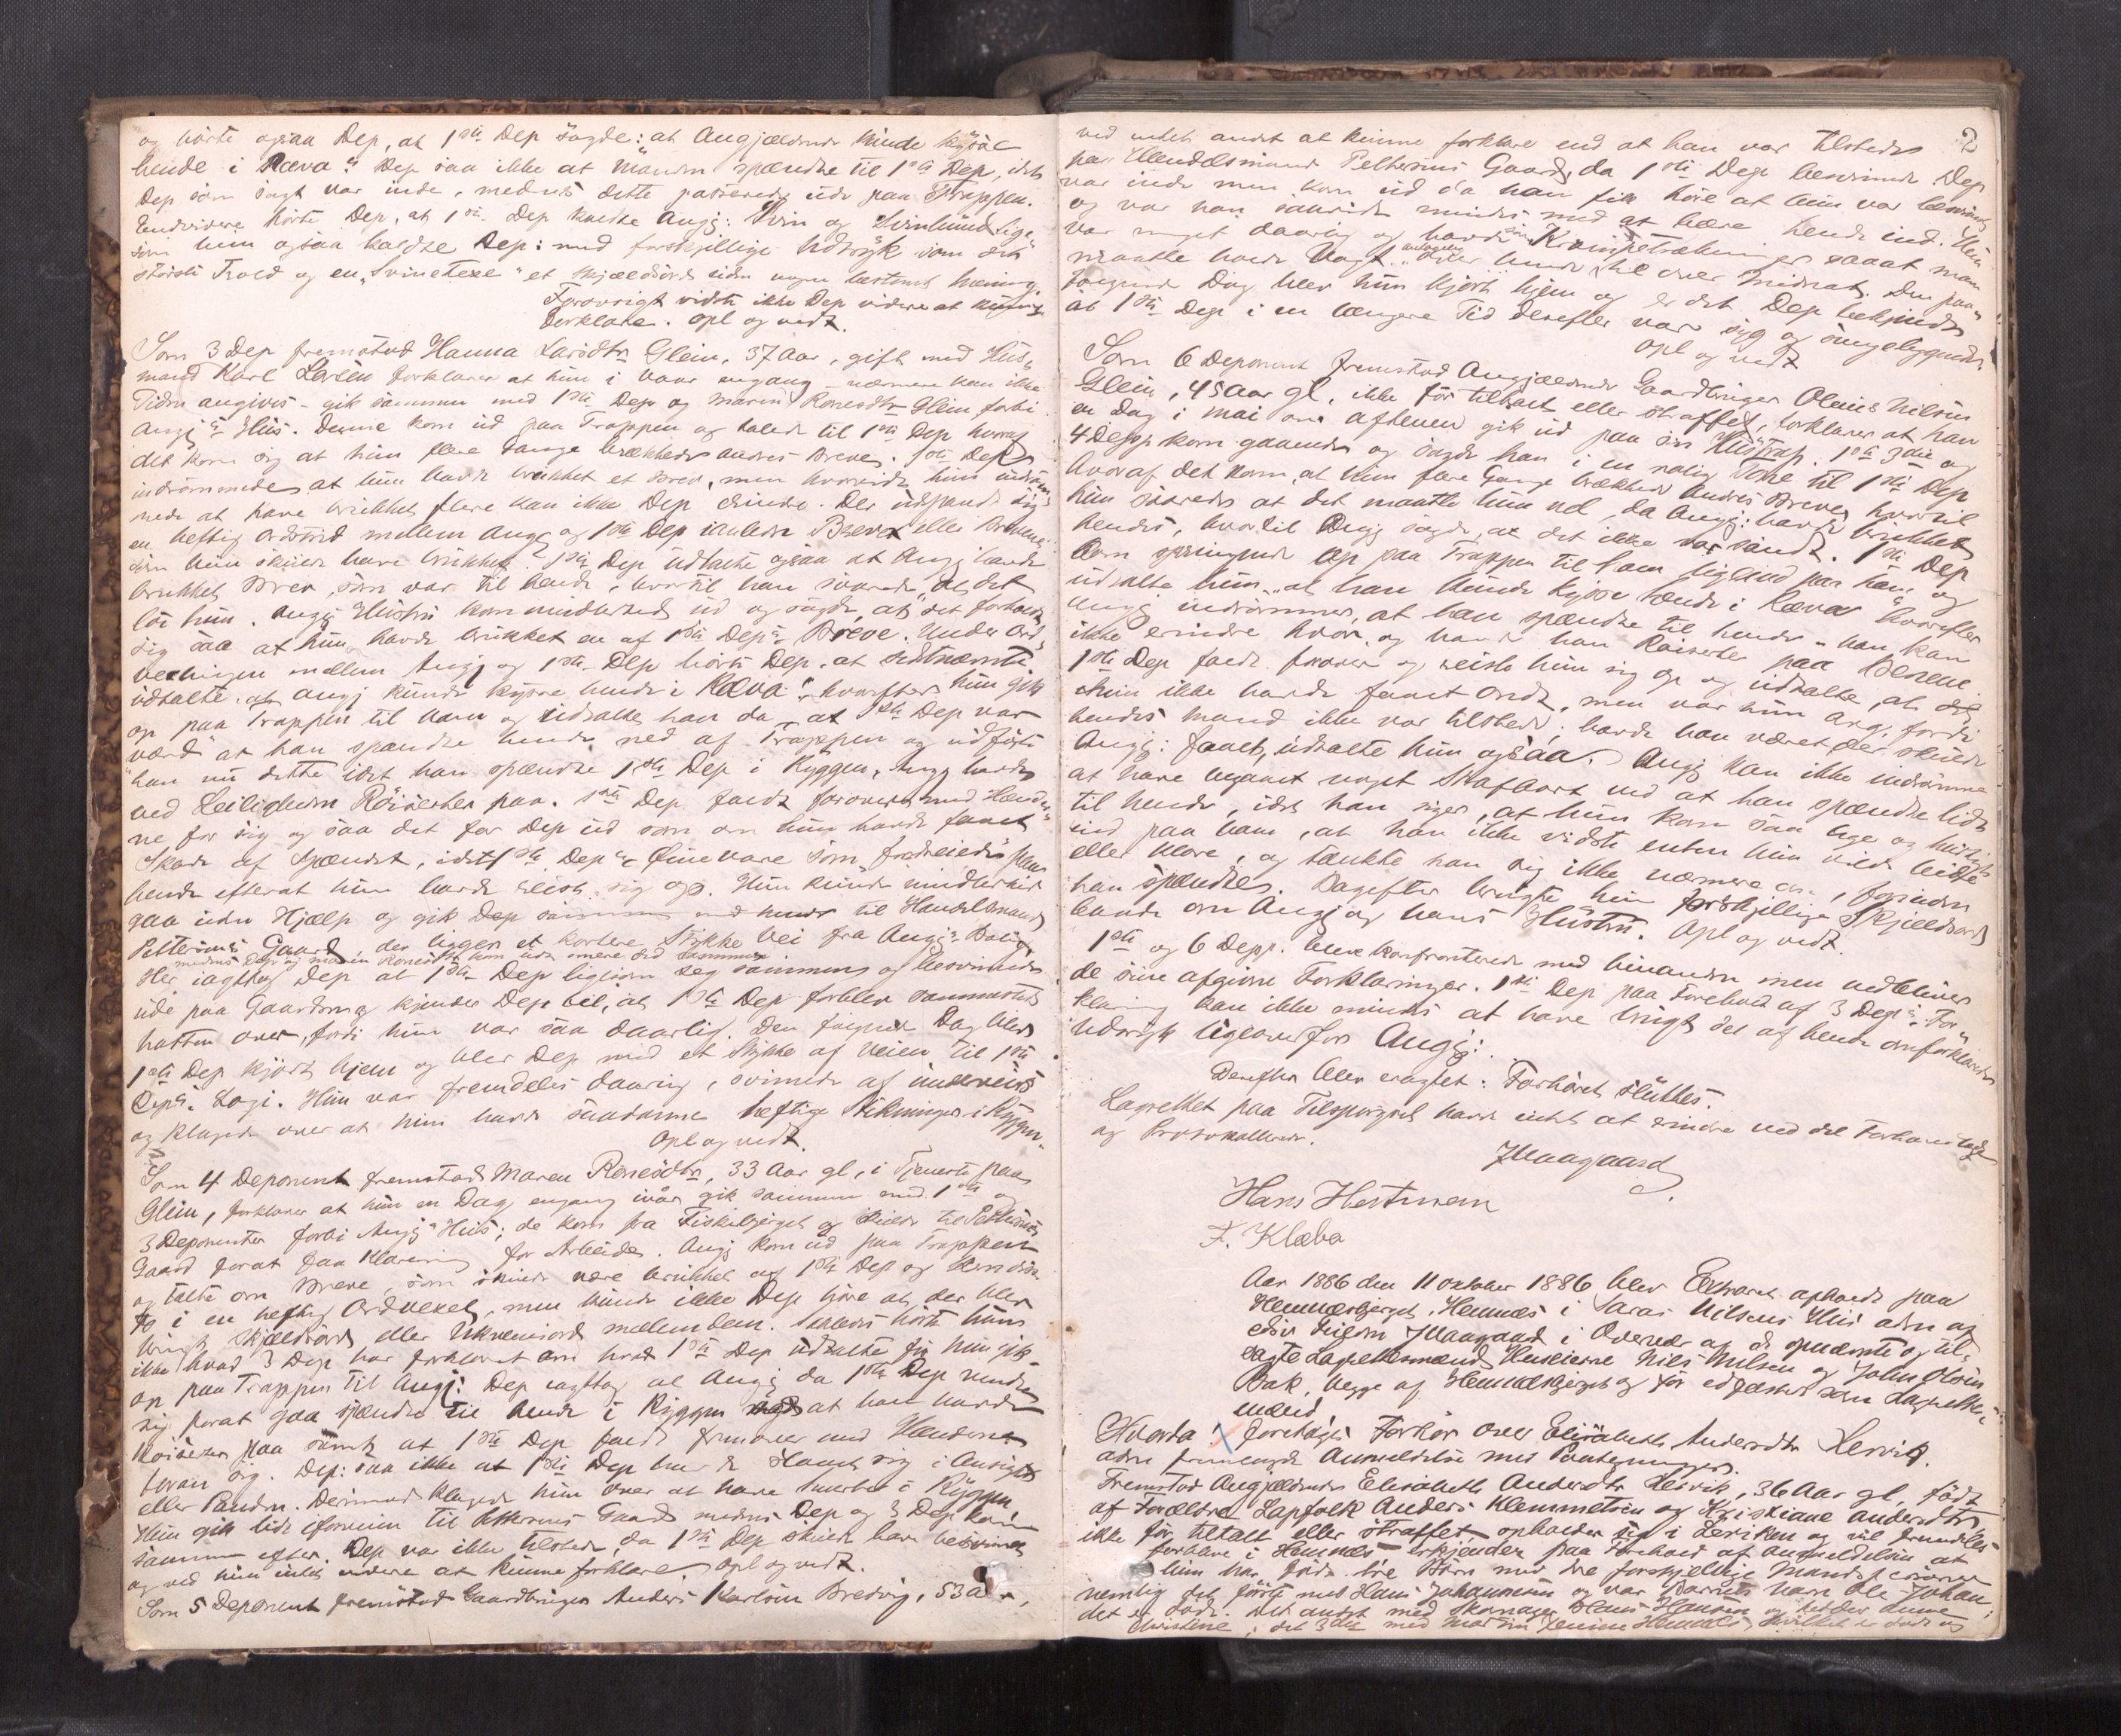 og hørte ogsaa Dep, at 1ste Dep sagde: at Angjældende kunde kysse
hende i Ræva". Dep saa ikke at Manden spændte til 1ste Dep, idet
Dep som sagt var inde, medens dette passerede ude paa Trappen.
Endvidere hørte Dep, at 1ste Dep kaldte Angj: Svin og
som hun ogsaa kaldte Dep: med forskjellige Udtryk som det
største Trold og en "Svinetexe" et Skjældsord uden nogen bestemt Mening.
Forøvrigt vidste ikke Dep videre at kunne
forklare. Opl og vedt.
Som 3 Dep fremstod Hanna Larsdtr Glein, 37 Aar, gift med Hus-
mand Karl Larsen forklarer at hun i Vaar engang - nærmere kan ikke
Tiden angives - gik sammen med 1ste Dep og Maren Ronesdtr Glein forbi
Angj's Hus. Denne kom ud paa Trappen og talede til 1ste Dep hvoraf
det kom sig at hun flere Gange brækkede andres Breve. 1ste Dep
indrømmede at hun havde brukket et Brev, men hvorvidt hun indrøm-
mede at have brukket flere kan ikke Dep erindre. Der udspandt sig
en heftig Ordstrid mellem Angj og 1ste Dep anledn Brevet eller Brevene
som hun skulde have brukket. 1ste Dep udtalte ogsaa at Angj havde
brukket Brev, som var til hende, hvortil han svarede, at det
løi hun. Angj Hustru kom imidlertid ud og sagde, at det forholdt
sig saa at hun havde brukket en af 1ste Dep's Breve. Under Ord-
vexlingen mellem Angj og 1ste Dep hørte Dep, at sidstnævnte
udtalte at Angj kunde kysse hende i Ræva", hvorefter hun gik
op paa Trappen til ham og udtalte han da at 1ste Dep var
værd" at han spændte hende ned af Trappen og udførte
han nu dette idet han spændte 1ste Dep i Ryggen, Angj havde
ved Leiligheden Røisester paa. 1ste Dep faldt forover med Hænder-
ne for sig og saa det for Dep ud som om hun havde faaet
Skade af Spændet, idet 1ste Dep's Øine vare som fordreiede paa
hende efterat hun havde reist sig op. Hun kunde imidlertid
gaa uden Hjælp og gik til Handelsmand
Pettersens Gaard, der ligger et kortere Stykke Vei fra Angj's Bolig,
medens Dep og Maren Ronesdtr kom lidt senere did sammen
Her iagttog Dep at 1ste Dep ligesom seg sammen og besvimede
ude paa Gaarden og kjender Dep til, at 1ste Dep forblev sammesteds
hatten over, fordi hun var saa daarlig. Den følgende Dag blev
1ste Dep kjørt hjem og blev Dep med et Stykke af Veien til 1ste
Dep's Logi. Hun var fremdeles daarlig, svimede af underveis
og klagede over at hun havde saadanne heftige Stikninger i Ryggen.
Opl og vedt.
Som 4 Deponent fremstod Maren Ronesdtr, 33 Aar gl, i Tjeneste paa
Glein, forklarer at hun en Dag engang ivår gik sammen med 1ste og
3 Deponenter forbi Angj's Hus; de kom fra Fiskebjerget og skulde til Pettersens
Gaard forat faa Klarering for Arbeide. Angj kom ud paa Trappen
og talte om Breve, som skulde være brukket af 1ste Dep og kom disse
to i en heftig Ordvexel, men kunde ikke Dep høre at der blev
brugt Skjældsord eller Ukvemsord mellem dem. Saaledes hørte hun
ikke hvad 3 Dep har forklaret om hvad 1ste Dep udtalte før hun gik
op paa Trappen til Angj: Dep iagttog at Angj da 1ste Dep vendte
sig forat gaa spændte til hende i Ryggen at han havde
Røisester paa samt at 1ste Dep faldt forover med Hænderne
foran sig. Dep: saa ikke at 1ste Dep havde slaaet sig i Ansigtet
eller Panden. Derimod klagede hun over at have Smerter i Ryggen
Hun gik lidt iforveien til Pettersens Gaard medens Dep og 3 Dep kom
sammen efter. Dep var ikke tilstede, da 1ste Dep skulde have besvimet
og ved hun intet videre at kunne forklare. Opl og vedt.
Som 5 Deponent fremstod Gaardbruger Anders Karlsen Bredvig, 53 Aar,
2
ved intet andet at kunne forklare end at han var tilstede
paa Handelsmand Pettersens Gaard, da 1ste Dep besvimede. Dep
var inde men kom ud da han fik høre at hun var besvimet
og var han saavidt mindes med at bære hende ind. Hun
var meget daarlig og havde Krampetrækninger saaat man
maatte holde Vagt over hende til over Midnat. Den paa-
følgende Dag blev hun kjørt hjem og er det Dep bekjendt
at 1ste Dep i en længere Tid derefter var syg og sengeliggende
Opl og vedt
Som 6 Deponent fremstod Angjældende Gaardbruger Olaus Nilsen
Glein, 45 Aar gl, ikke før tiltalt eller straffet, forklarer at han
en Dag i Mai om Aftenen gik ud paa sin Hustrap. 1ste 3die og
4 Depp. kom gaaende og sagde han i en rolig Tone til 1ste Dep
hvoraf det kom, at hun flere Gange brækkede Andres Breve, hvortil
hun svarede at det maatte hun vel, da Angj: havde brukket
hendes, hvortil Angj sagde, at det ikke var sandt. 1ste Dep
kom springende op paa Trappen til ham ligeind paa ham og
udtalte hun, at han kunde kysse hende i Ræva" hvorefter
Angj indrømmer, at han spændte til hende - han kan
ikke erindre hvor, og havde han Røisester paa Benene.
1ste Dep faldt forover og reiste hun sig op og udtalte, at
hun ikke havde faaet ondt, men var hun arg, fordi
hendes Mand ikke var tilstede; havde han været der skulde
Angj: faaet, udtalte hun ogsaa. Angj kan ikke indrømme
at have begaaet noget Strafbart ved at han spændte lidt
til hende, idet han siger, at hun kom saa lige og hidsigt
ind paa ham, at han ikke vidste enten hun vilde bidte
eller klore, og tænkte han sig ikke nærmere om, førinden
han spændte. Dagefter brugte hun forskjellige Skjældsord
baade om Angj og hans Hustru. Opl og vedt.
1ste og 6 Depp. blev konfronterede med hinanden men vedbliver
de sine afgivne Forklaringer. 1ste Dep paa Forehold af 3 Dep's For-
klaring kan ikke mindes at have brugt det af hende omforklarede
Udtryk ligeoverfor Angj:
Derefter blev eragtet: Forhøret sluttes.
Lagrettet paa Tilspørgsel havde intet at erindre ved det Forhandlede
og Protokollerede.
J Maagaard
Hans Hestmann
F. Klæbo
Aar 1886 den 11 Oktober 1886 blev Extraret afholdt paa
Hemnæsberget, Hemnæs i Saras Nilsens Hus adm af
edsv Fuldm J Maagaard i Overvær af de opnævnte og til-
sagte Lagrettesmænd Huseierne Nils Nilsen og John Olsen
Bak, begge af Hemnæsberget og før edfæstede som Lagrettes-
mænd.
Hvorda foretages Forhør over Elisabeth Andersdtr Lervik.
adm fremlagde Anmeldelse med Paategninger.
Fremstod Angjældende Elisabeth Andersdtr Lervik, 36 Aar gl, født
af Forældre Lapfolk Anders Klemmetsen og Kristiane Andersdtr
ikke før tiltalt eller straffet, opholder sig i Leriken og vil fremdeles
forblive i Hemnæs - erkjender paa Forehold af Anmeldelsen at
hun har født tre Børn med tre forskjellige Mandspersoner
nemlig det første med Hans Johannesen og var Barnets Navn Ole Johan,
det er død. Det andet med Skomager Hans Hansen og hedder denne
Christine, det 3die med Martin Jensen Hemnæs, hvilket er død og